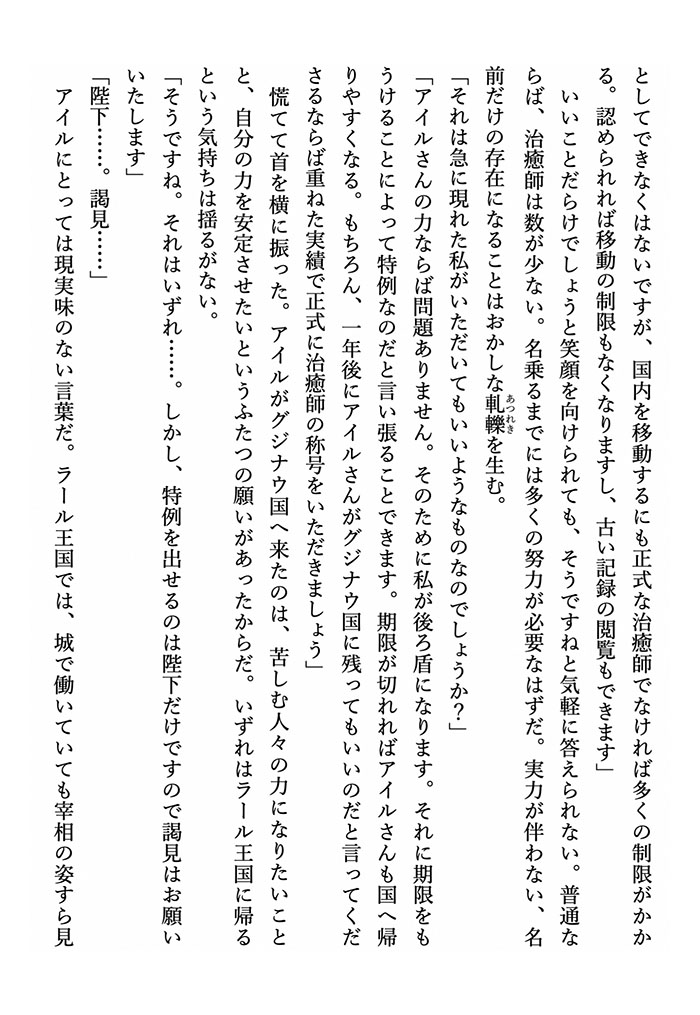 としてできなくはないですが、国内を移動するにも正式な治癒師でなければ多くの制限がかか
る。認められれば移動の制限もなくなりますし、古い記録の閲覧もできます」
　いいことだらけでしょうと笑顔を向けられても、そうですねと気軽に答えられない。普通な
らば、治癒師は数が少ない。名乗るまでには多くの努力が必要なはずだ。実力が伴わない、名
前だけの存在になることはおかしな軋轢あつれきを生む。
「それは急に現れた私がいただいてもいいようなものなのでしょうか？」
「アイルさんの力ならば問題ありません。そのために私が後ろ盾になります。それに期限をも
うけることによって特例なのだと言い張ることできます。期限が切れればアイルさんも国へ帰
りやすくなる。もちろん、一年後にアイルさんがグジナウ国に残ってもいいのだと言ってくだ
さるならば重ねた実績で正式に治癒師の称号をいただきましょう」
　慌てて首を横に振った。アイルがグジナウ国へ来たのは、苦しむ人々の力になりたいこと
と、自分の力を安定させたいというふたつの願いがあったからだ。いずれはラール王国に帰る
という気持ちは揺るがない。
「そうですね。それはいずれ……。しかし、特例を出せるのは陛下だけですので謁見はお願い
いたします」
「陛下……。謁見……」
　アイルにとっては現実味のない言葉だ。ラール王国では、城で働いていても宰相の姿すら見